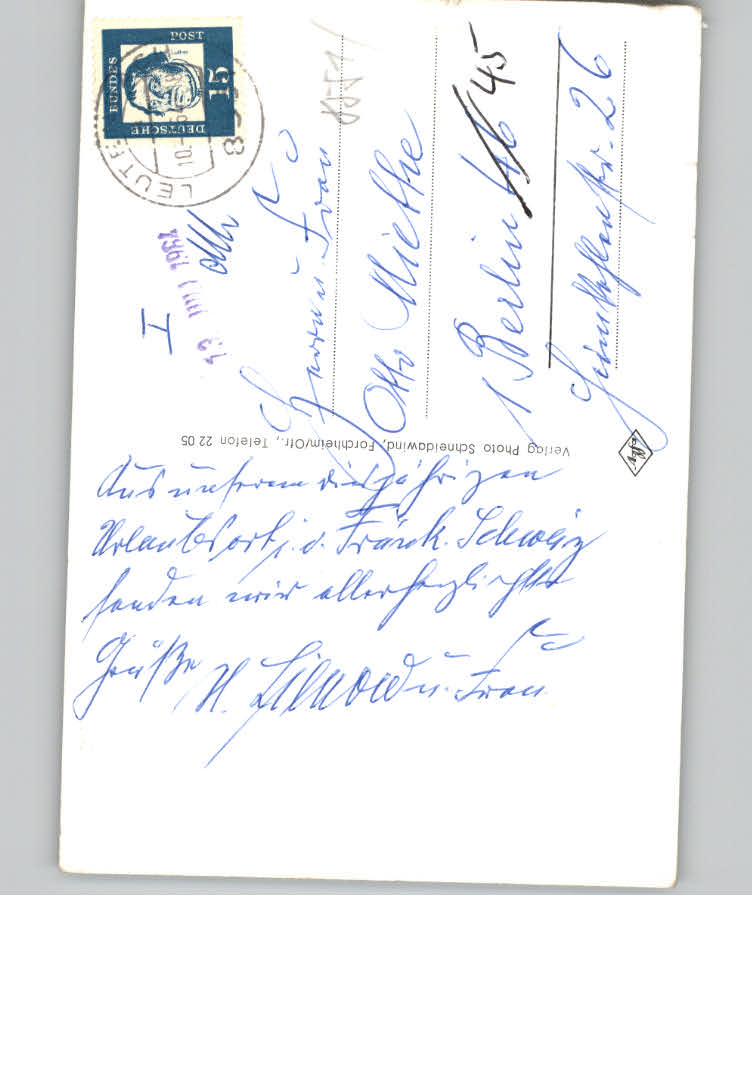 Aus unserem diesjährigen
Urlaubsort i. d. Fränk. Schweiz
senden wir allerherzlichste
Grüße
H. u. Frau
Verlag Photo Schneidawind, Forchheim/Ofr., Telefon 22 05
Herrn u. Frau
Otto Miethe
1 Berlin 46 45
26
8551
I
13. JUNI 1964
DEUTSCHE
BUNDES
POST
15
LEUTE
10.
Agfa